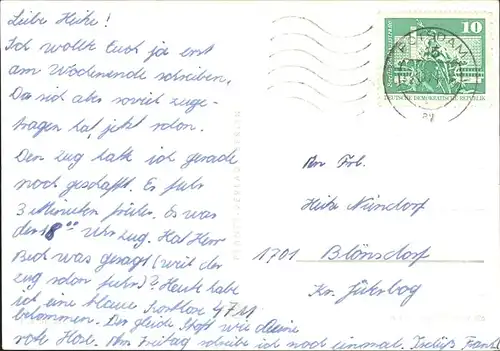 Liebe Heike!
Ich wollte Euch ja erst
am Wochenende schreiben,
Da sich aber soviel zuge-
tragen hat, jetzt schon.
Den Zug hatte ich gerade
noch geschafft. Es fuhr
3 Minuten früher. Es war
der 8⁰⁰ Uhr Zug. Hat Herr
was gesagt (weil der
Zug schon fuhr)? Heute habe
ich eine blaue
bekommen. Der gleiche Stoff wie Deine
rote Hose. Am Freitag schreibe ich noch einmal. Tschüß Frank
10
DEUTSCHE DEMOKRATISCHE REPUBLIK
POTSDAM
An Frl.
Heike Nündorf
1701 Blönsdorf
Kr. Jüterbog